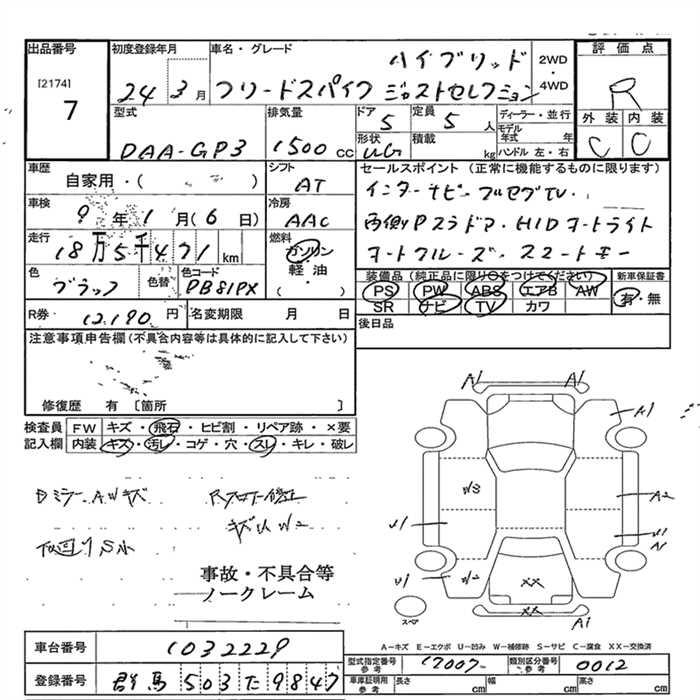 出品番号
[2174]
7
初度登録年月
24 3月
車名・グレード
ハイブリッド
フリードスパイク ジャストセレクション
2WD
・
4WD
評価点
R
外装 内装
C C
型式
DAA-GP3
排気量
1500 cc
ドア
5
定員
5 人
形状
UG
積載
kg
ディーラー・並行
モデル年式 年
ハンドル 左・右
車歴
自家用・( )
シフト
AT
車検
9年 1月(6日)
冷房
AAC
走行
18万5千471 km
燃料
ガソリン
軽油
( )
色
ブラック
色替
色コード
PB81PX
R券
12,190 円
名変期限 月 日
セールスポイント(正常に機能するものに限ります)
インターナビ・フルセグTV・
両側Pスラドア・HIDオートライト
オートクルーズ・スマートキー
装備品(純正品に限り○をつけてください)
PS PW ABS エアB AW
SR ナビ TV カワ
新車保証書
有・無
後日品
注意事項申告欄(不具合内容等は具体的に記入して下さい)
修復歴 有 〔箇所 〕
検査員記入欄
FW キズ・飛石・ヒビ割・リペア跡・×要
内装 キズ・汚レ・コゲ・穴・スレ・キレ・破レ
Dミラー、AWキズ
下回りSル
キズU W2
事故・不具合等
ノークレーム
A1 A1
A1
W3
A2
U1
U1
A1
U1
W2
XX
XX
A1
スペア
A-キズ E-エクボ U-凹み W-補修跡 S-サビ C-腐食 XX-交換済
車台番号 1032229
登録番号 群馬503た9847
型式指定番号 参考 17007
類別区分番号 参考 0012
車庫証明用 参考 長さ cm 幅 cm 高さ cm